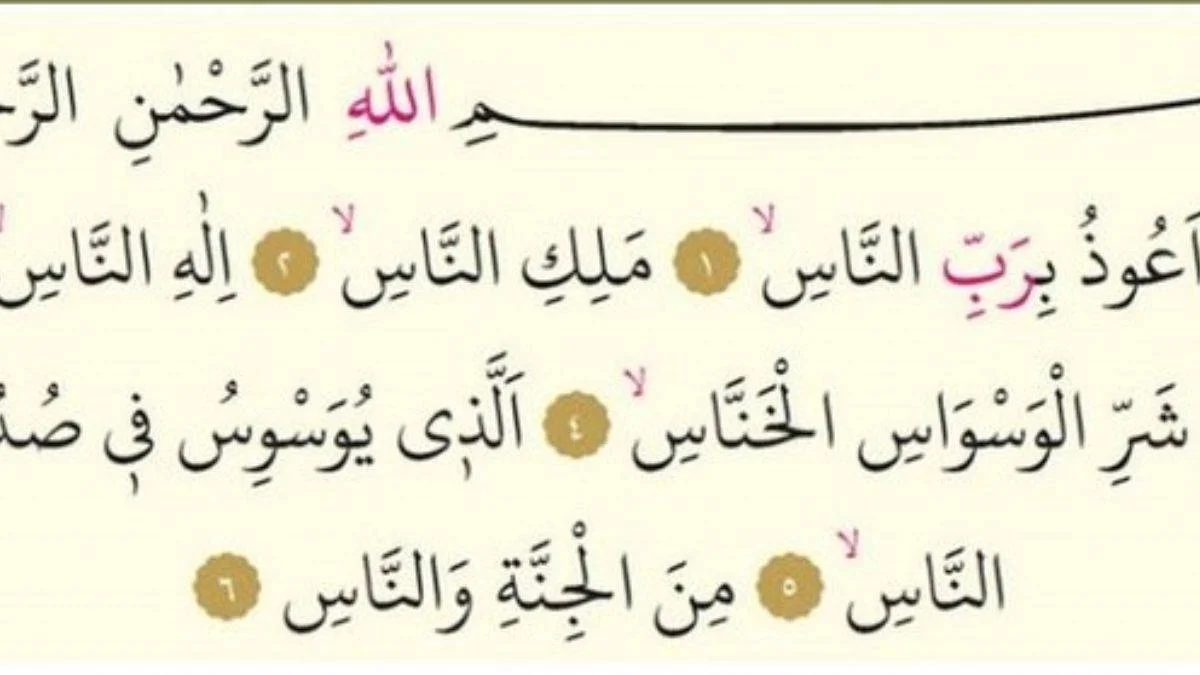 ـــمِ اللّٰهِ الرَّحْمٰنِ الرَّح
اَعُوذُ بِرَبِّ النَّاسِۙ ١ مَلِكِ النَّاسِۙ ٢ اِلٰهِ النَّاسِۙ
شَرِّ الْوَسْوَاسِ الْخَنَّاسِۙ ٤ اَلَّذ۪ى يُوَسْوِسُ ف۪ى صُدُ
النَّاسِۙ ٥ مِنَ الْجِنَّةِ وَالنَّاسِ ٦